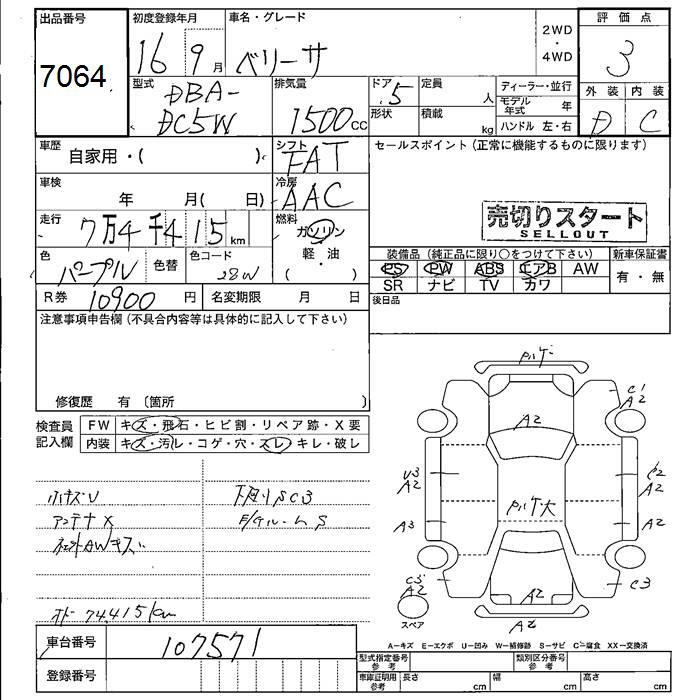 出品番号
7064
初度登録年月
16 9月
車名・グレード
ベリーサ
2WD
・
4WD
評価点
3
型式
DBA-
DC5W
排気量
1500cc
ドア 5
定員 人
形状
積載 kg
ディーラー・並行
モデル年式 年
ハンドル 左・右
外装 内装
D C
車歴
自家用・( )
シフト
FAT
車検
年 月( 日)
冷房
AAC
走行
7万4千415km
燃料
ガソリン
軽・油
( )
色
パープル
色替
色コード
28W
R券 10900円
名変期限 月 日
セールスポイント(正常に機能するものに限ります)
売切りスタート
SELLOUT
装備品(純正品に限り○をつけて下さい)
新車保証書
PS PW ABS エアB AW
SR ナビ TV カワ
有・無
後日品
注意事項申告欄(不具合内容等は具体的に記入して下さい)
修復歴 有〔箇所 〕
検査員
記入欄
FW キズ・飛石・ヒビ割・リペア跡・X要
内装 キズ・汚れ・コゲ・穴・スレ・キレ・破レ
小キズU
アンテナX
AWキズ
下廻りSC3
S
オドー 74.415km
車台番号
107571
登録番号
A2
C1
A2
A2
U3
A2
A2
A3
A2
C3
A2
A2
C3
A2
スペア
A-キズ E-エクボ U-凹み W-補修跡 S-サビ C-腐食 XX-交換済
型式指定番号
参考
類別区分番号
参考
車庫証明用
参考
長さ cm
幅 cm
高さ cm